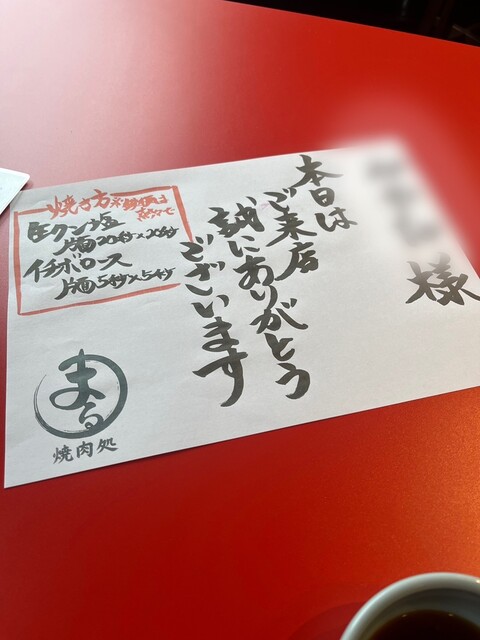 様
本日は
ご来店
誠にありがとう
ございます
焼き方 ※鉄板は
熱々で
生タン塩
片面20秒×20秒
イチボロース
片面5秒×5秒
まる
焼肉処